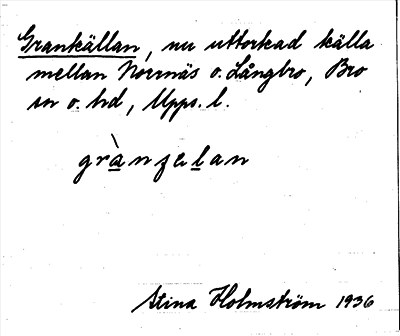 Grankällan, nu uttorkad källa
mellan Norrnäs o. Långbro, Bro
sn o. hd, Upps. l.
grànʒɛlan
Stina Holmström 1936